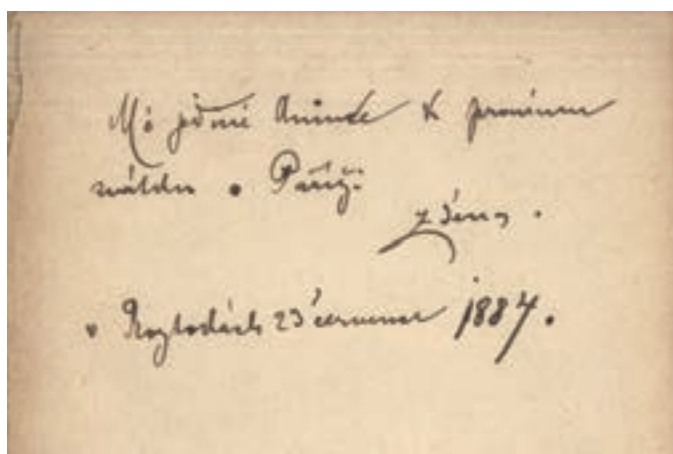 Mé jediné Anince k prvnímu
svátku v Paříži
Zdena.
v Roztokách 23 července 1884.